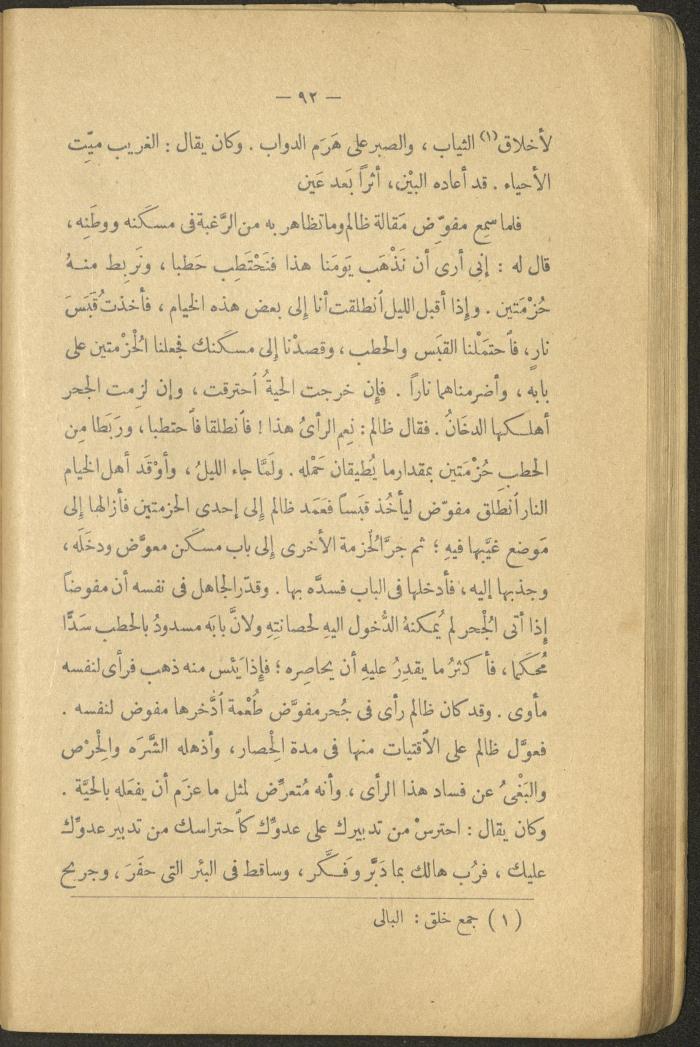 — ٩٢ —
لأخلاق(١) الثياب ، والصبر على هَرَم الدواب . وكان يقال : الغريب ميّت
الأحياء . قد أعاده البيْن، أثراً بَعد عَين
فلما سمِع مفوّض مَقالة ظالم وما تظاهر به من الرَّغبة فى مسكنه ووطَنِه ،
قال له : إنى أرى أن نَذْهَب يَومَنا هذا فنَحْتَطِب حَطبا ، ونَربِط منهُ
حُزْمَتين . وإِذا أقبل الليل اُنطلقت أنا إلى بعض هذه الخيام ، فأخذتُ قبَسَ
نارٍ، فاَحتمَلْنا القبَس والحطب ، وقصدْنا إلى مسكنك فجعلنا الحُزْمتين على
بابه ، وأضرمناهما ناراً . فإِن خرجت الحيةُ اُحترقت ، وإن لزمت الجحر
أهلكها الدخَانُ . فقال ظالم : نِعِم الرأىُ هذا ! فاَنطلقا فاَحتطبا ، ورَبَطا مِن
الحطب حُزْمَتين بمقدار ما يُطيقان حَمْله . ولَمَّا جاء الليلُ ، وأوْقَد أهل الخيام
النار اُنْطَلق مفوّض ليأخُذ قبَساً فعَمَد ظالم إِلى إحدى الحزمتين فأزالها إِلى
مَوضع غيَّبها فيهِ ؛ ثم جرَّ الحُزمة الأخرى إِلى باب مسكن معوَّض ودخَلَه ،
وجذبها إليه ، فأدخلها فى الباب فسدَّه بها . وقدّر الجاهل فى نفسه أن مفوضاً
إِذا أتى الجُحر لم يُمكنهُ الدُّخول اليهِ لحصانتِهِ ولأنَّ بابَه مسدودُ بالحطب سَدًّا
مُحكما ، فأكثرُ ما يقدِرُ عليهِ أن يحاصِره ؛ فإِذا يَئس منه ذهب فرأى لنفسه
مأوى . وقد كان ظالم رأى فى جُحر مفوَّض طُعْمة اُدَّخرها مفوض لنفسه .
فعوَّل ظالم على الاُقتيات منها فى مدة الحِصار، وأذهله الشَّرَه والحِرْص
والبَغْىُ عن فساد هذا الرأى ، وأنه مُتعرِّض لمثل ما عزَم أن يفعَله بالحيَّة .
وكان يقال : احترسْ من تدبيرك على عدوِّك كاَحتراسك من تدبير عدوِّك
عليك ، فرُب هالك بما دَبَّر وفَكَّر ، وساقط فى البئر التى حفَرَ ، وجريح
(١) جمع خلق : البالى